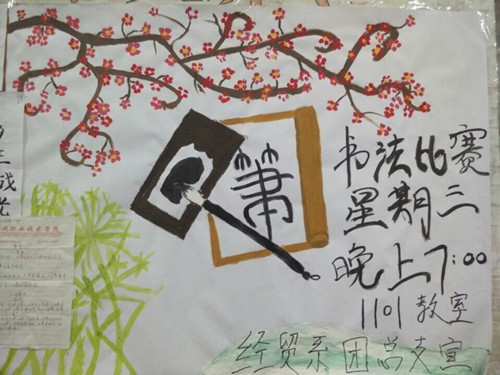 筆
书法比赛
星期二
晚上7:00
1101教室
经贸系团总支宣